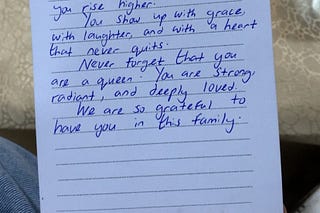 you rise higher.
You show up with grace,
with laughter, and with a heart
that never quits.
Never forget that you
are a queen. You are strong,
radiant, and deeply loved.
We are so grateful to
have you in this family.